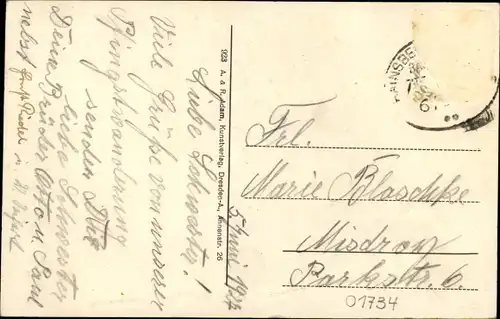 Liebe Schwester!
Viele Grüße von unserer
Pfingstwanderung
senden Dir
liebe Schwester
Deine Brüder Otto u. Paul
nebst
5. Juni 1922
923 A. & R. Adam, Kunstverlag, Dresden-A., Annenstr. 26
Frl.
Marie Blaschke
Misdroy
Parkstr. 6.
01734